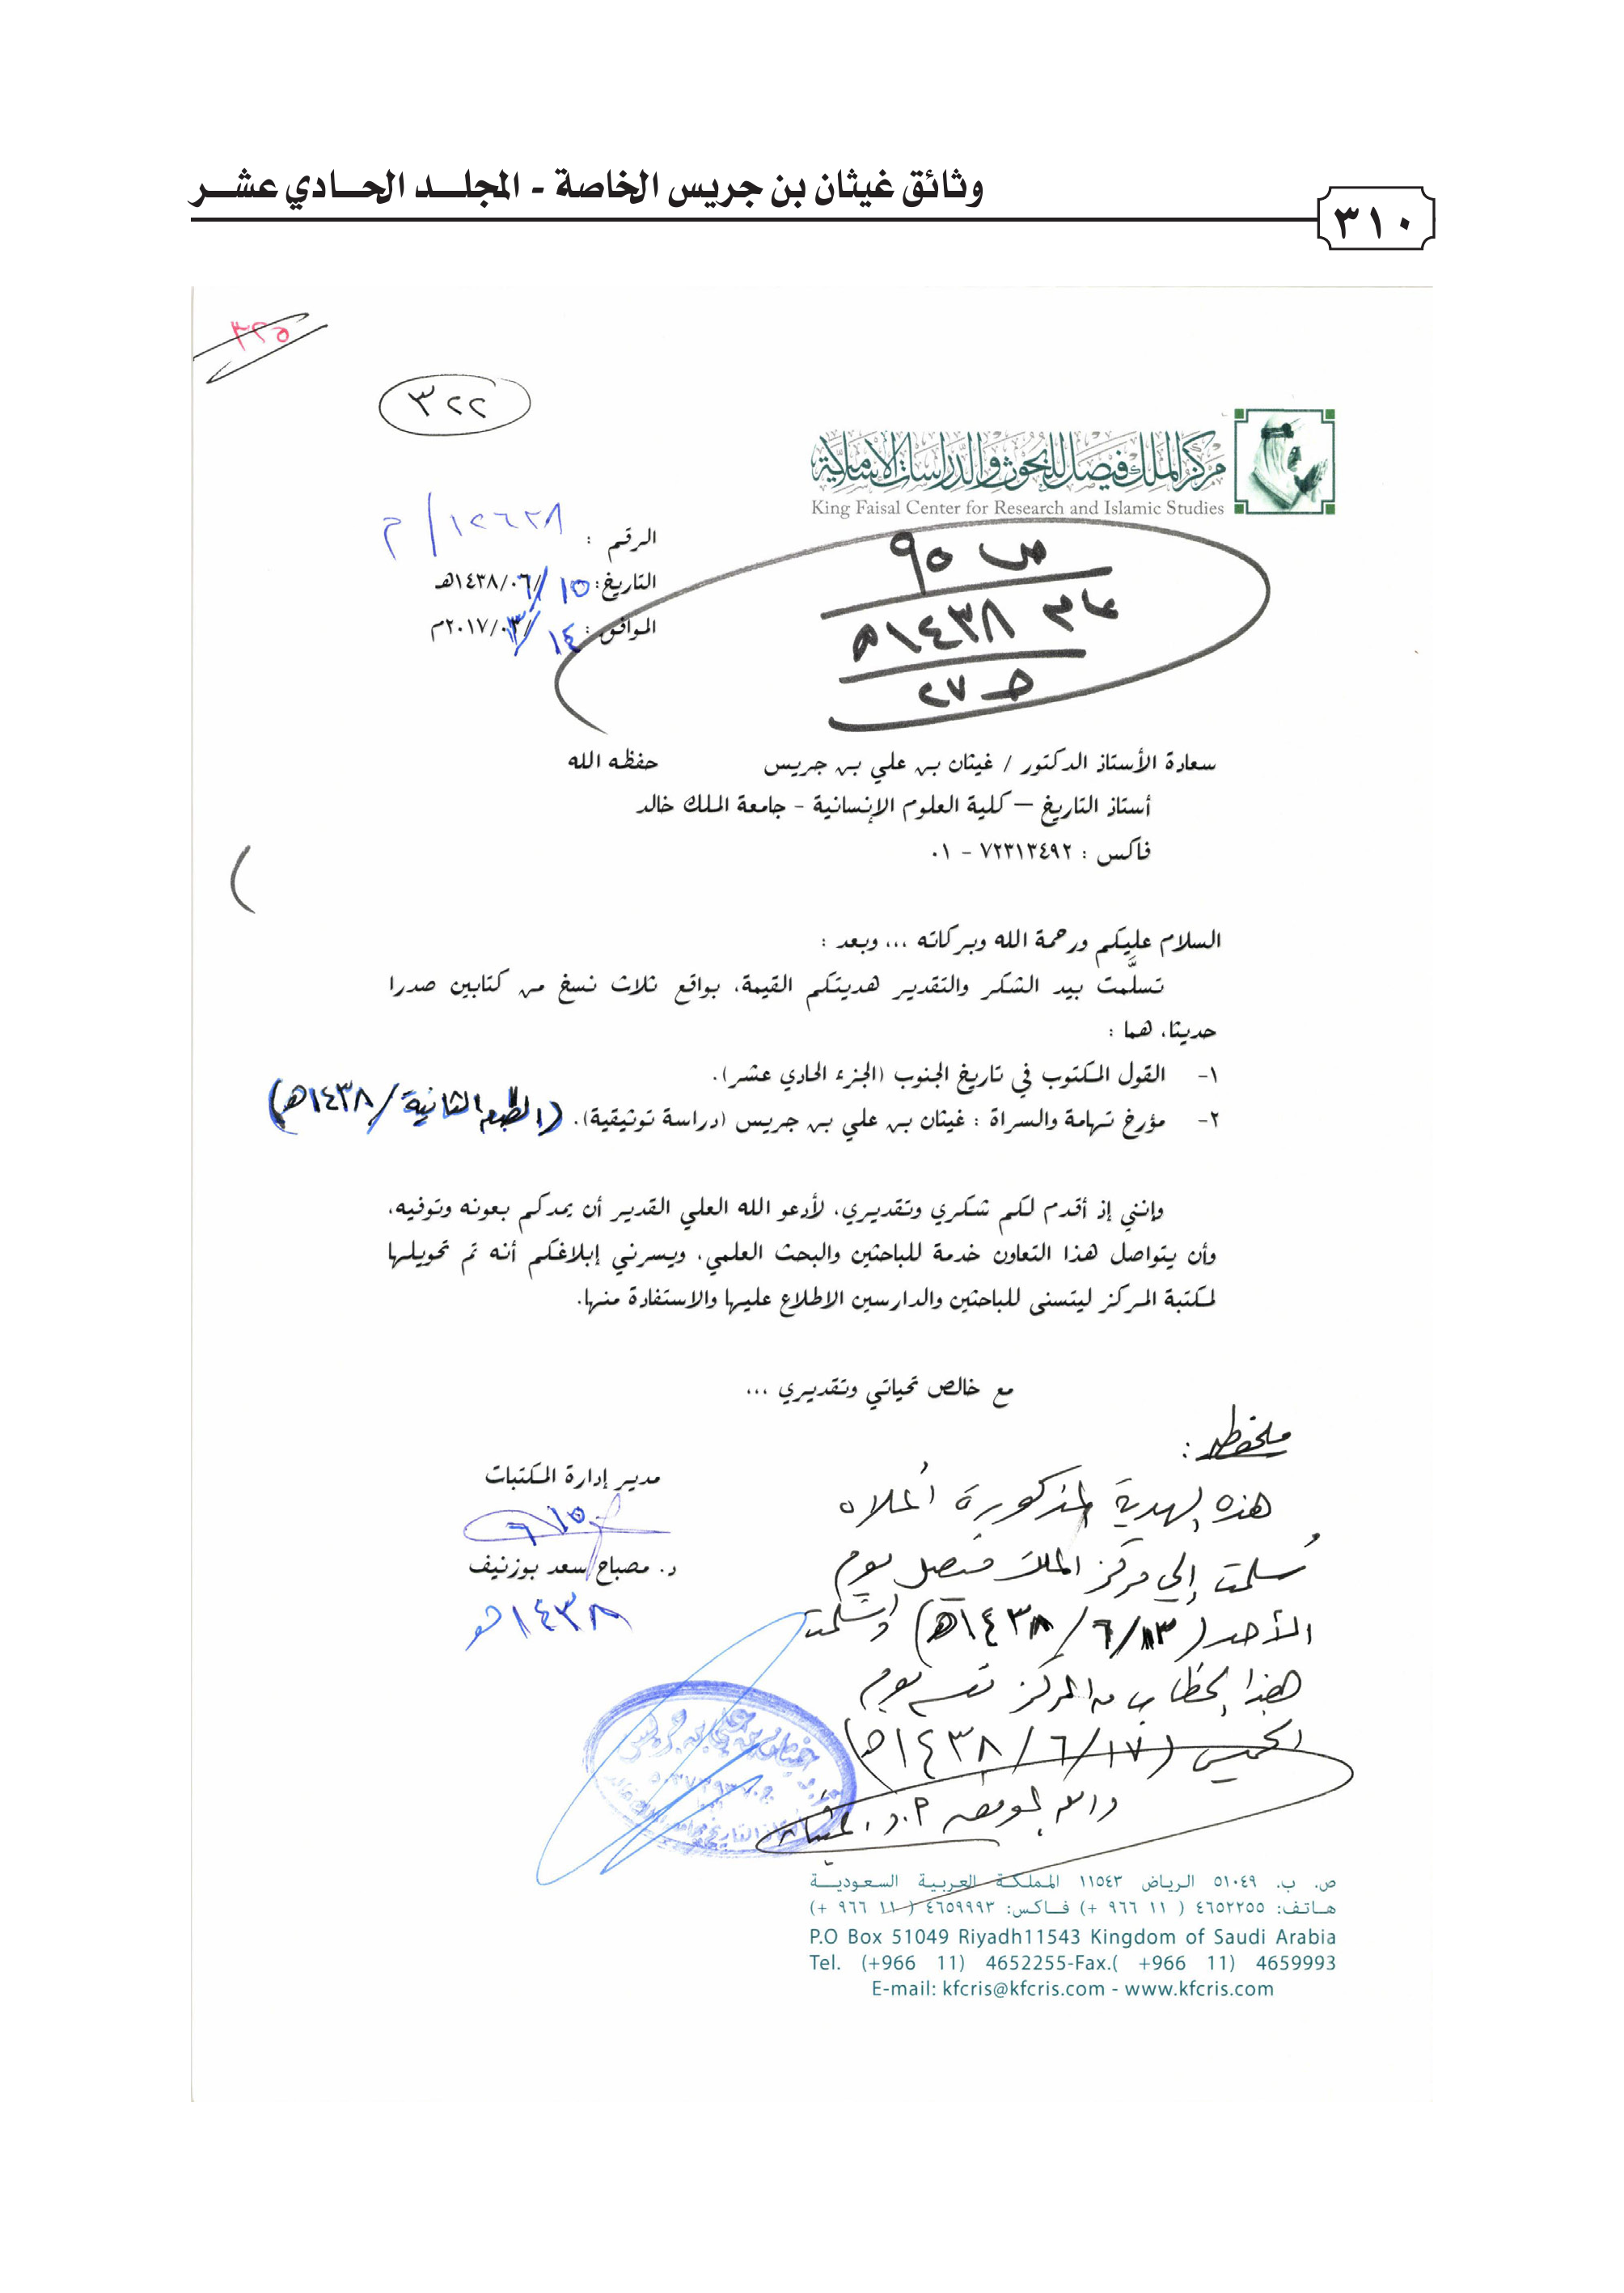 وثائق غيثان بن جريس الخاصة - المجلد الحادي عشر
٣١٠
٣٢٥
٣٢٢
مركز الملك فيصل للبحوث والدراسات الإسلامية
King Faisal Center for Research and Islamic Studies
الرقم : ١٢٦٢٨ / م
التاريخ: ١٥/٠٦/١٤٣٨هـ
الموافق: ١٤/٠٣/٢٠١٧م
ص ٩٥
عام ١٤٣٨هـ
ط ٢٧
سعادة الأستاذ الدكتور / غيثان بن علي بن جريس حفظه الله
أستاذ التاريخ – كلية العلوم الإنسانية - جامعة الملك خالد
فاكس : ٧٢٣١٣٤٩٢ - ٠١
السلام عليكم ورحمة الله وبركاته ... وبعد :
تسلَّمت بيد الشكر والتقدير هديتكم القيمة، بواقع ثلاث نسخ من كتابين صدرا
حديثا، هما :
١- القول المكتوب في تاريخ الجنوب (الجزء الحادي عشر).
٢- مؤرخ تهامة والسراة : غيثان بن علي بن جريس (دراسة توثيقية). (الطبعة الثانية / ١٤٣٨هـ)
وإنني إذ أقدم لكم شكري وتقديري، لأدعو الله العلي القدير أن يمدكم بعونه وتوفيه،
وأن يتواصل هذا التعاون خدمة للباحثين والبحث العلمي، ويسرني إبلاغكم أنه تم تحويلها
لمكتبة المركز ليتسنى للباحثين والدارسين الاطلاع عليها والاستفادة منها.
مع خالص تحياتي وتقديري ...
مدير إدارة المكتبات
٦/١٥
د. مصباح سعد بوزنيف
١٤٣٨هـ
ملحوظة :
هذه الهدية المذكورة أعلاه
سُلمت إلى مركز الملك فيصل يوم
الأحد (١٣/٦/١٤٣٨هـ) واستلمت
هذا الخطاب من المركز نفسه يوم
الخميس (١٧/٦/١٤٣٨هـ)
والله الموفق أ.د. غيثان
ص. ب. ٥١٠٤٩ الرياض ١١٥٤٣ المملكة العربية السعودية
هاتف: ٤٦٥٢٢٥٥ ( ١١ ٩٦٦ +) فاكس: ٤٦٥٩٩٩٣ ( ١١ ٩٦٦ +)
P.O Box 51049 Riyadh11543 Kingdom of Saudi Arabia
Tel. (+966 11) 4652255-Fax.( +966 11) 4659993
E-mail: kfcris@kfcris.com - www.kfcris.com